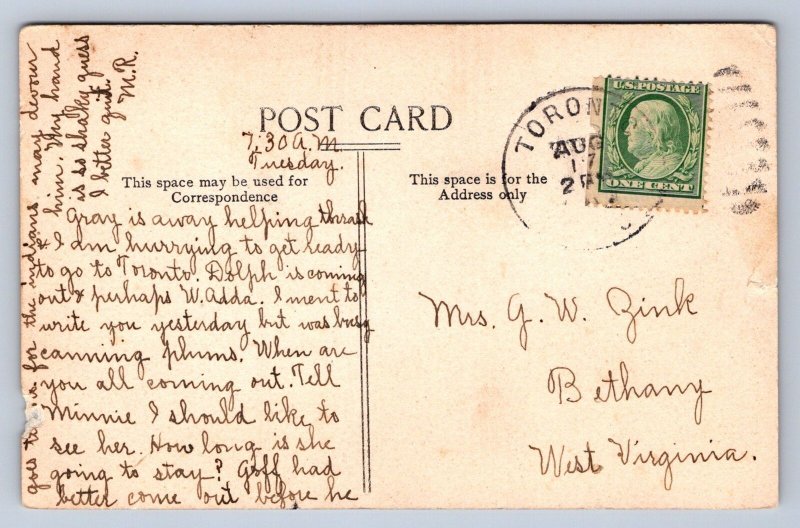 POST CARD
7.30 A.M.
Tuesday.
This space may be used for
Correspondence
This space is for the
Address only
Gray is away helping thrash
& I am hurrying to get ready
to go to Toronto. Dolph is coming
out & perhaps W. Adda. I ment to
write you yesterday but was busy
canning plums. When are
you all coming out. Tell
Minnie I should like to
see her. How long is she
going to stay? Goff had
better come out before he
goes for the indians may devour
him. My hand
is so shaky guess
I better quit.
M.R.
TORON
AUG
17
2 PM
U.S. POSTAGE
ONE CENT
Mrs. G. W. Zink
Bethany
West Virginia.